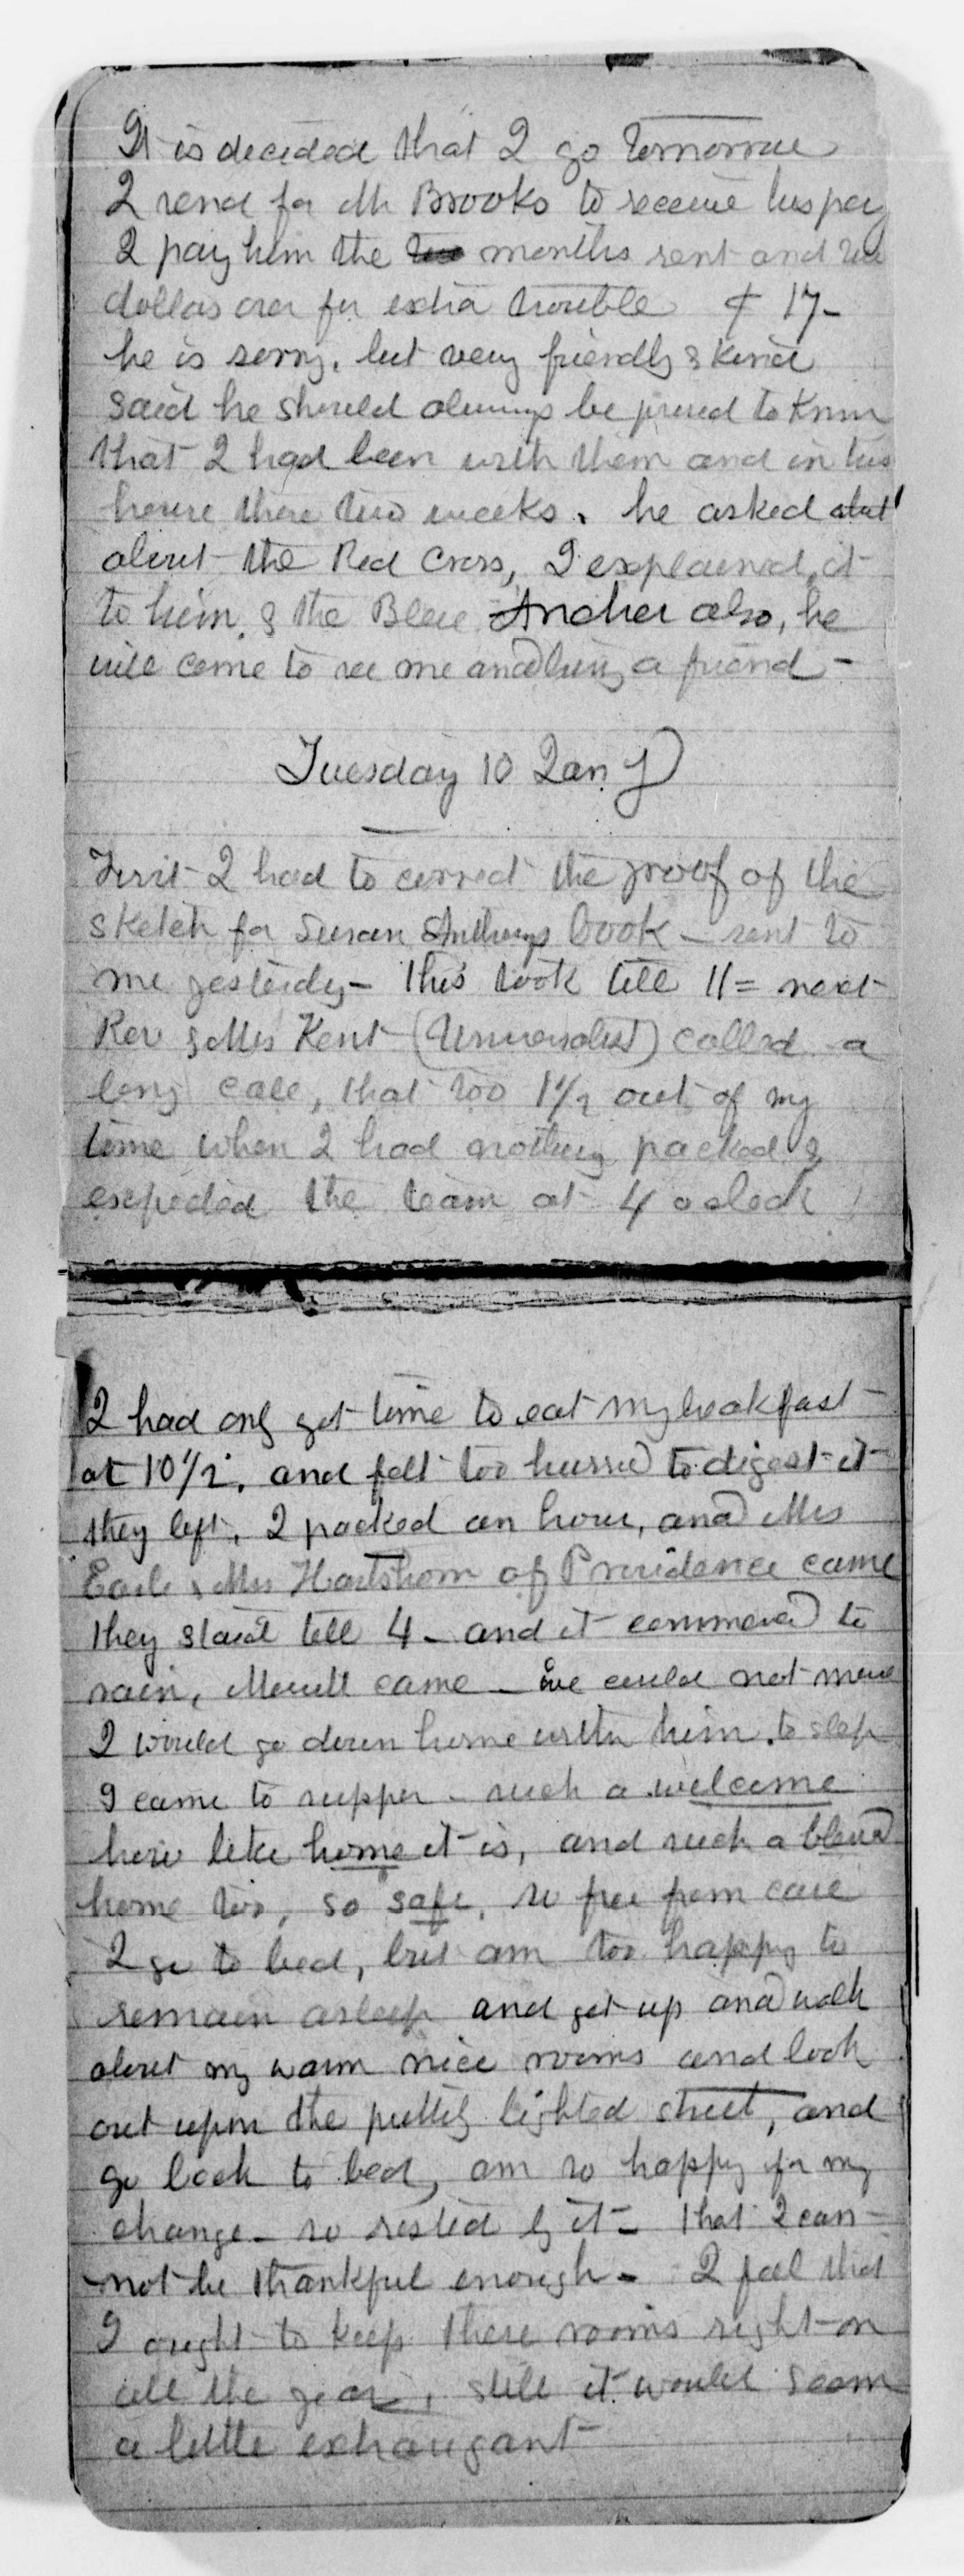 It is decided that I go tomorrow
I send for Mr Brooks to receive his pay
I pay him the two months rent and two
dollas over for extra trouble $ 17-
he is sorry, but very friendly & kind
said he should always be proud to know
that I had been with them and in his
house these two weeks. he asked about
about the Red Cross, I explained it
to him, & the Blue Anchor also, he
will come to see me and bring a friend -
Tuesday 10 Jany
First I had to correct the proof of the
sketch for Susan Anthonys book - sent to
me yesterday - this took till 11 = next
Rev & Mrs Kent (Universalist) called a
long call, that too 1 1/2 out of my
time when I had nothing packed &
expected the team at 4 oclock
I had only got time to eat my breakfast
at 10 1/2. and felt too hurried to digest it
they left, I packed an hour, and Mrs
Earle & Mrs Hartshorn of Providence came
they staid till 4 - and it commenced to
rain, Merrill came - we could not move
I would go down home with him. to sleep
I came to supper - such a welcome
how like home it is, and such a blessed
home too, so safe, so free from care
I go to bed, but am too happy to
remain asleep and get up and walk
about my warm nice rooms and look
out upon the prettily lighted street, and
go back to bed, am so happy for my
change - so rested by it - that I can
not be thankful enough - I feel that
I ought to keep these rooms right on
all the year, still it would seem
a little extravgant